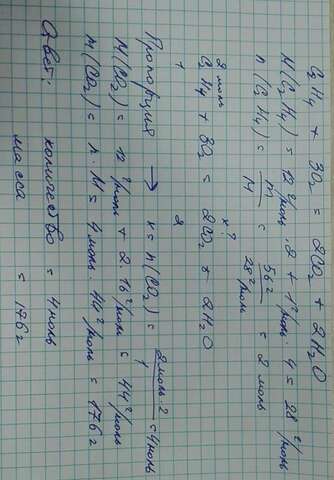 C₂H₄ + 3O₂ = 2CO₂ + 2H₂O
M(C₂H₄) = 12 г/моль · 2 + 1 г/моль · 4 = 28 г/моль
n(C₂H₄) = m/M = 56 г / 28 г/моль = 2 моль
2 моль x?
C₂H₄ + 3O₂ = 2CO₂ + 2H₂O
1 2
Пропорция → x = n(CO₂) = 2 моль · 2 / 1 = 4 моль
M(CO₂) = 12 г/моль + 2 · 16 г/моль = 44 г/моль
m(CO₂) = n · M = 4 моль · 44 г/моль = 176 г
Ответ: количество = 4 моль
масса = 176 г